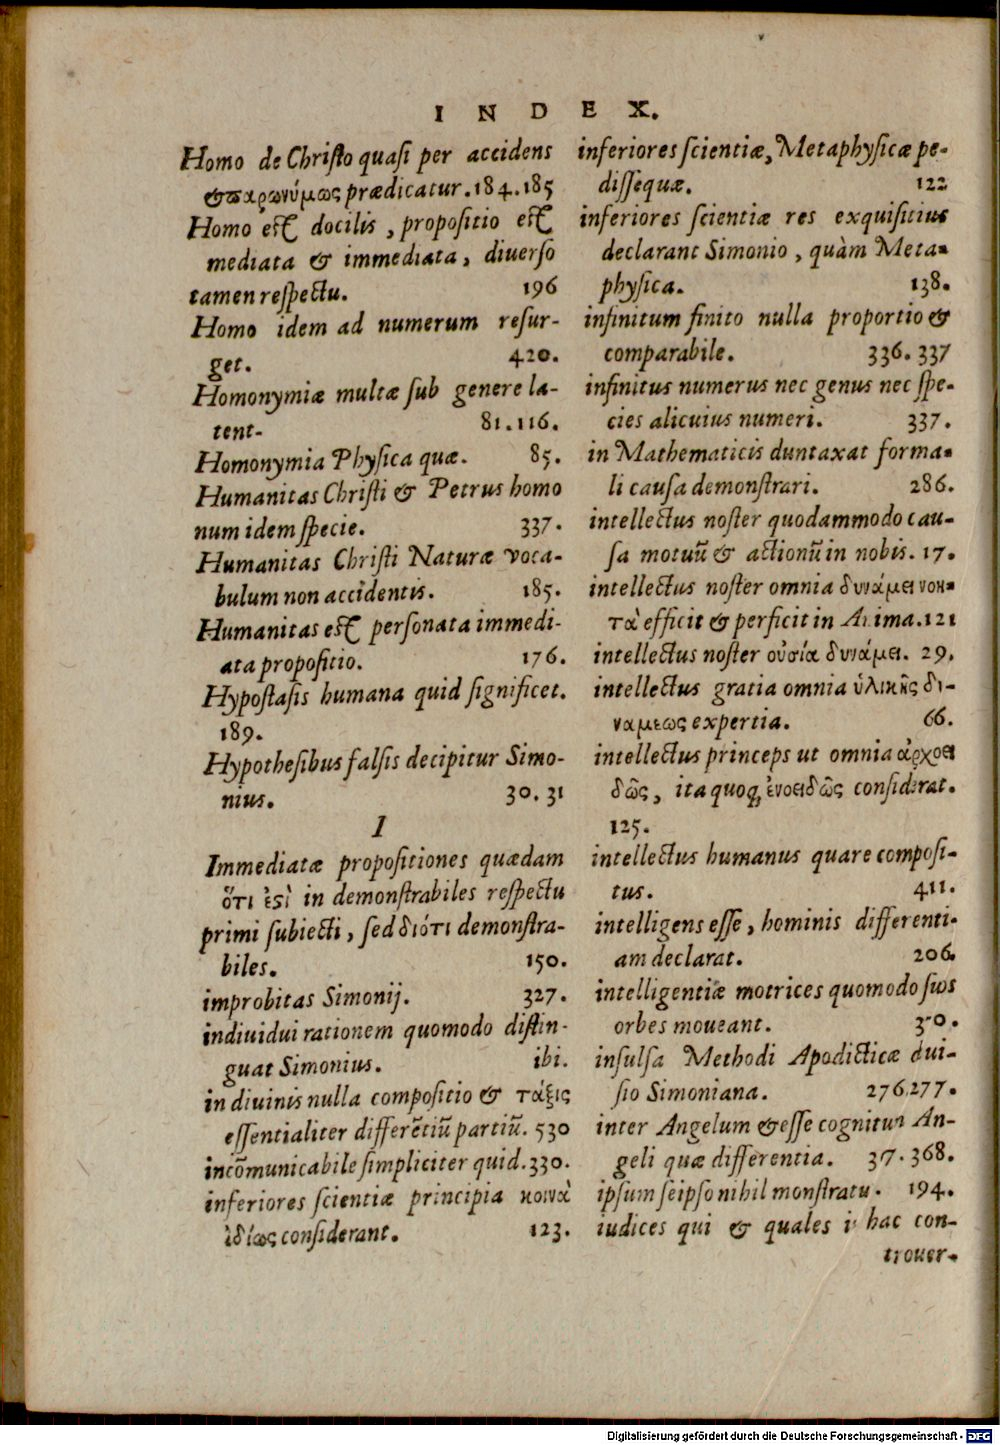 INDEX.
Homo de Christo quasi per accidens
& παρωνύμως prædicatur. 184. 185
Homo est docilis, propositio est
mediata & immediata, diuerso
tamen respectu. 196
Homo idem ad numerum resur-
get. 420.
Homonymiæ multæ sub genere la-
tent. 81. 116.
Homonymia Physica quæ. 85.
Humanitas Christi & Petrus homo
num idem specie. 337.
Humanitas Christi Naturæ voca-
bulum non accidentis. 185.
Humanitas est personata immedi-
ata propositio. 176.
Hypostasis humana quid significet.
189.
Hypothesibus falsis decipitur Simo-
nius. 30. 31
I
Immediatæ propositiones quædam
ὅτι ἐςὶ in demonstrabiles respectu
primi subiecti, sed διότι demonstra-
biles. 150.
improbitas Simonij. 327.
indiuidui rationem quomodo distin-
guat Simonius. ibi.
in diuinis nulla compositio & τάξις
essentialiter differẽtiũ partiũ. 530
incõmunicabile simpliciter quid. 330.
inferiores scientiæ principia κοινὰ
ἰδίως considerant. 123.
inferiores scientiæ, Metaphysicæ pe-
dissequæ. 122
inferiores scientiæ res exquisitius
declarant Simonio, quàm Meta-
physica. 138.
infinitum finito nulla proportio &
comparabile. 336. 337
infinitus numerus nec genus nec spe-
cies alicuius numeri. 337.
in Mathematicis duntaxat forma-
li causa demonstrari. 286.
intellectus noster quodammodo cau-
sa motuũ & actionũ in nobis. 17.
intellectus noster omnia δυνάμει νοη-
τὰ efficit & perficit in Anima. 121
intellectus noster οὐσία δυνάμει. 29.
intellectus gratia omnia ὑλικῆς δι-
ναμεως expertia. 66.
intellectus princeps ut omnia ἀρχοει
δῶς, ita quoq; ἑνοειδῶς considerat.
125.
intellectus humanus quare composi-
tus. 411.
intelligens esse, hominis differenti-
am declarat. 206.
intelligentiæ motrices quomodo suos
orbes moueant.
insulsa Methodi Apodicticæ diui-
sio Simoniana. 276. 277.
inter Angelum & esse cognitum An-
geli quæ differentia. 368.
ipsum seipso nihil monstratu. 194.
iudices qui & quales hac con-
trouer-
Digitalisierung gefördert durch die Deutsche Forschungsgemeinschaft - DFG